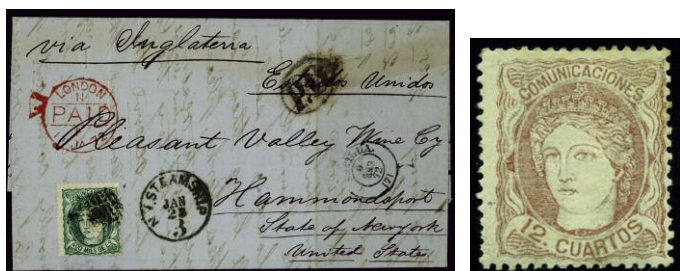 via Inglaterra
Estados Unidos
LONDON
PAID
Pleasant Valley Wine Cy
N.Y. STEAMSHIP
JAN
3
Hammondsport
State of Newyork
United States
COMUNICACIONES
12. CUARTOS